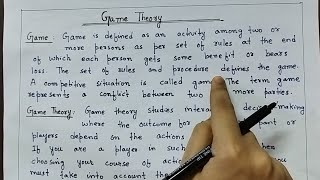 Game Theory
Game : Game is defined as an activity among two or
more persons as per set of rules at the end
of which each person gets some benefit or bears
loss. The set of rules and procedure defines the game.
A competitive situation is called game. The term game
represents a conflict between two more parties.
Game Theory: Game theory studies intera making
where the outcome for part or
players depend on the actions
If you are a player in such
choosing your course of action
must take into account the